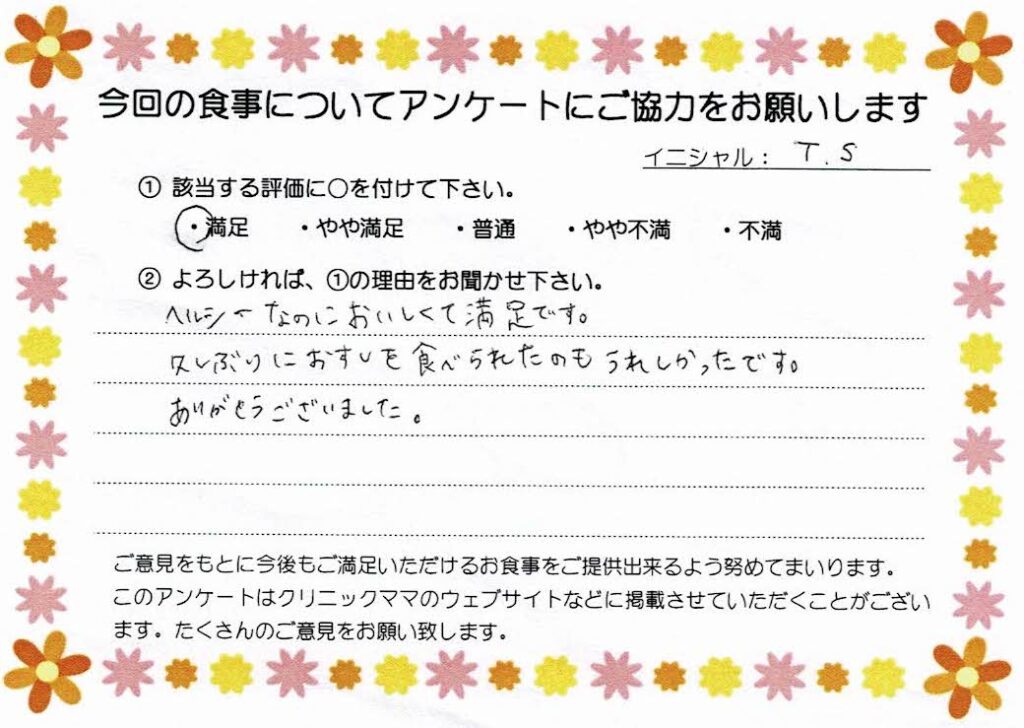 今回の食事についてアンケートにご協力をお願いします
イニシャル： T.S
① 該当する評価に○を付けて下さい。
・満足 ・やや満足 ・普通 ・やや不満 ・不満
② よろしければ、①の理由をお聞かせ下さい。
ヘルシーなのにおいしくて満足です。
久しぶりにおすしを食べられたのもうれしかったです。
ありがとうございました。
ご意見をもとに今後もご満足いただけるお食事をご提供出来るよう努めてまいります。
このアンケートはクリニックママのウェブサイトなどに掲載させていただくことがござい
ます。たくさんのご意見をお願い致します。